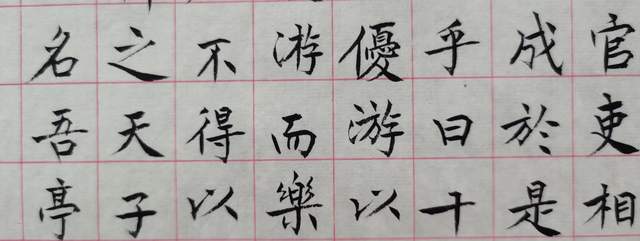 官吏相
成於是
乎曰十
優游以
游而樂
不得以
之天子
名吾亭